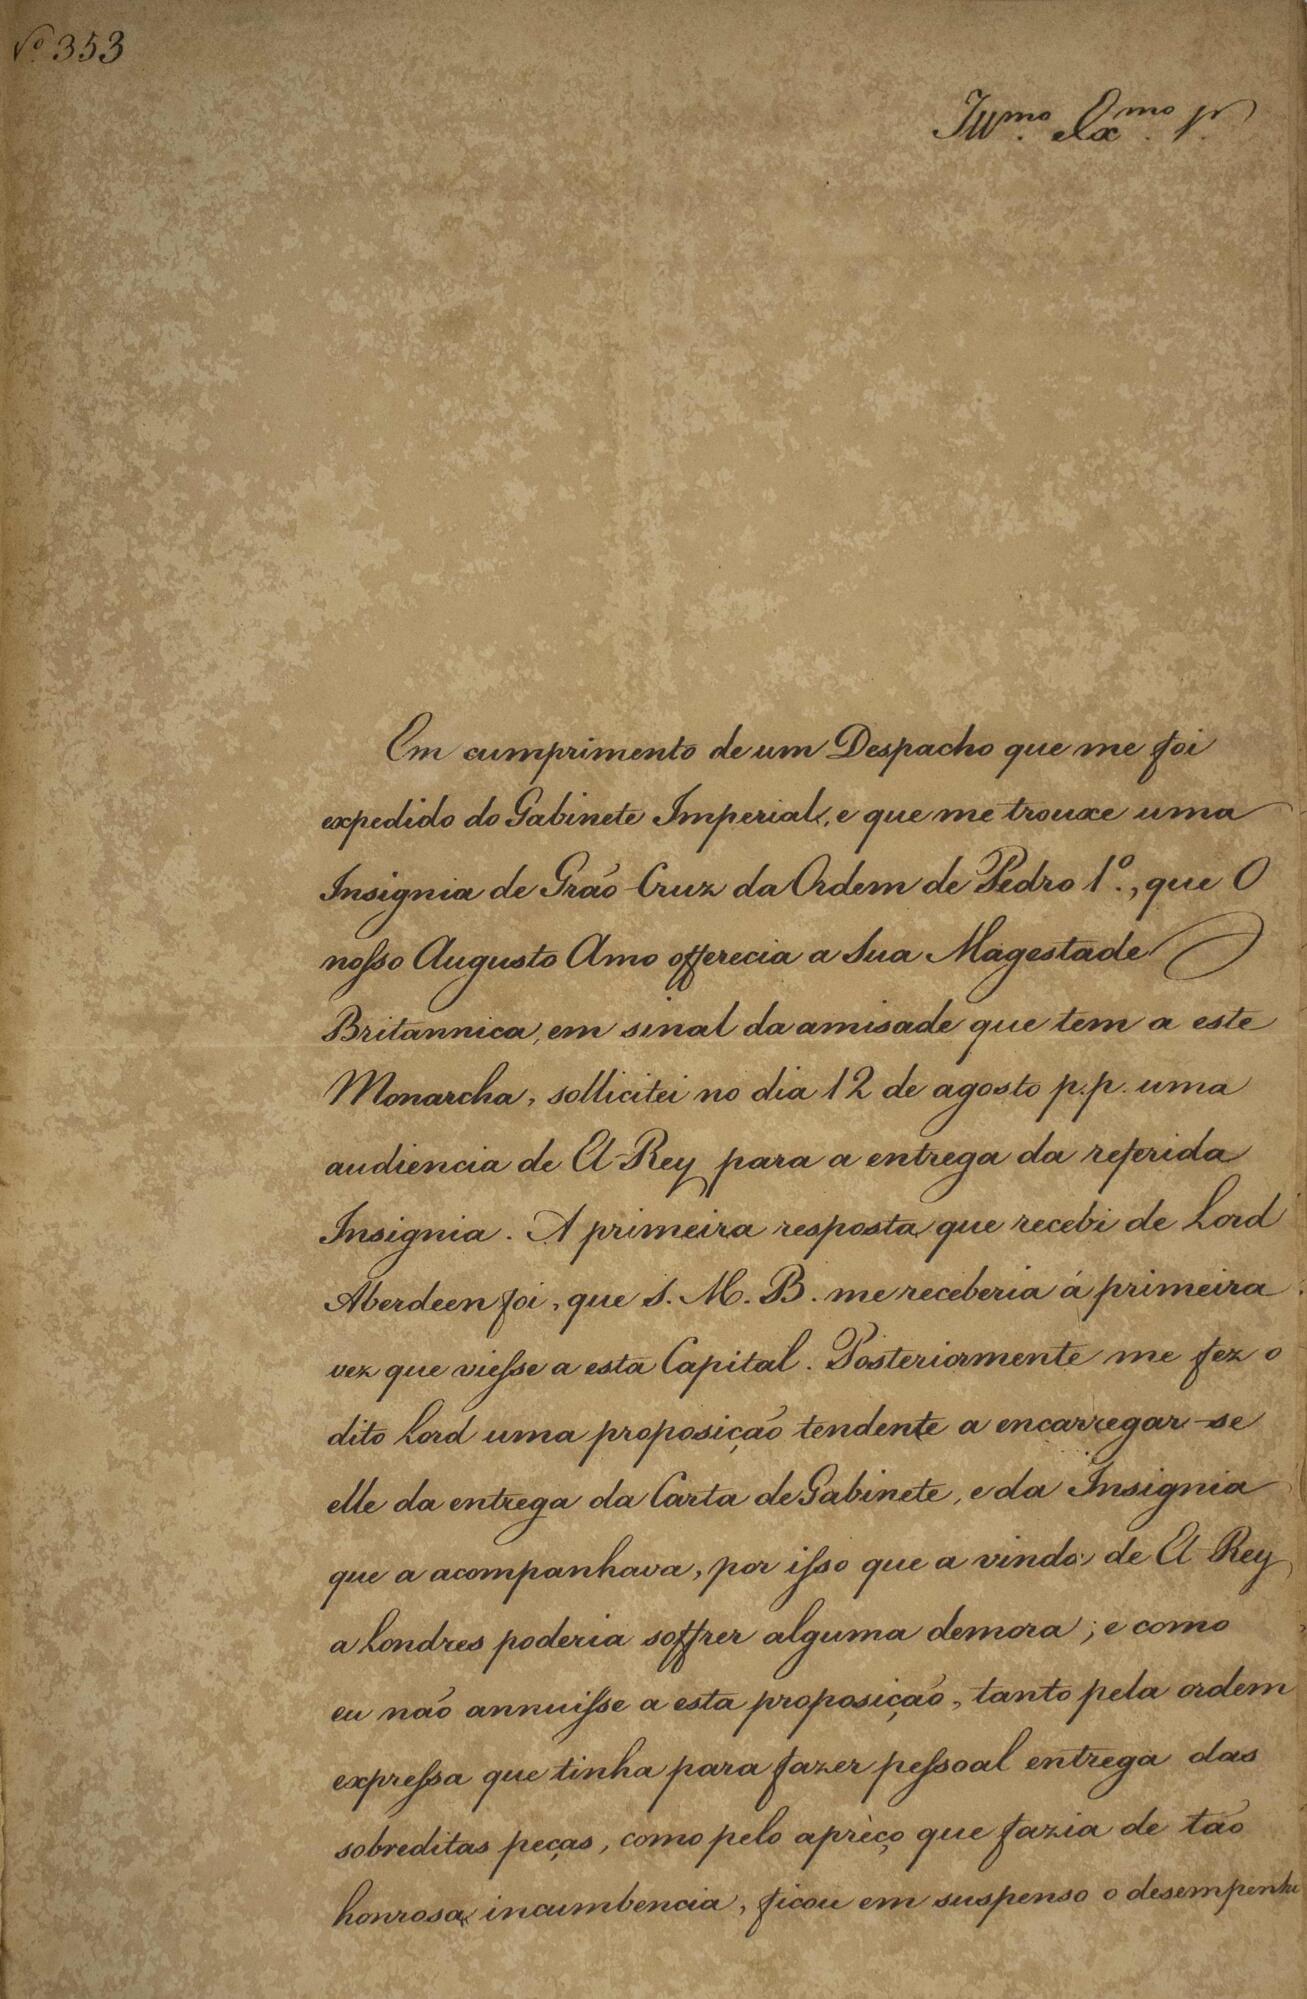 Nº 353
Illmo. Exmo. Sr.
Em cumprimento de um Despacho que me foi
expedido do Gabinete Imperial, e que me trouxe uma
Insignia de Grão-Cruz da Ordem de Pedro 1º., que O
nosso Augusto Amo offerecia a Sua Magestade
Britannica, em sinal da amisade que tem a este
Monarcha, sollicitei no dia 12 de agosto p.p. uma
audiencia de El-Rey para a entrega da referida
Insignia. A primeira resposta que recebi de Lord
Aberdeen foi, que S. M. B. me receberia á primeira
vez que viesse a esta Capital. Posteriormente me fez o
dito Lord uma proposição tendente a encarregar-se
elle da entrega da Carta de Gabinete, e da Insignia
que a acompanhava, por isso que a vinda de El-Rey
a Londres poderia soffrer alguma demora; e como
eu não annuisse a esta proposição, tanto pela ordem
expressa que tinha para fazer pessoal entrega das
sobreditas peças, como pelo aprèço que fazia de tão
honrosa incumbencia, ficou em suspenso o desempenho